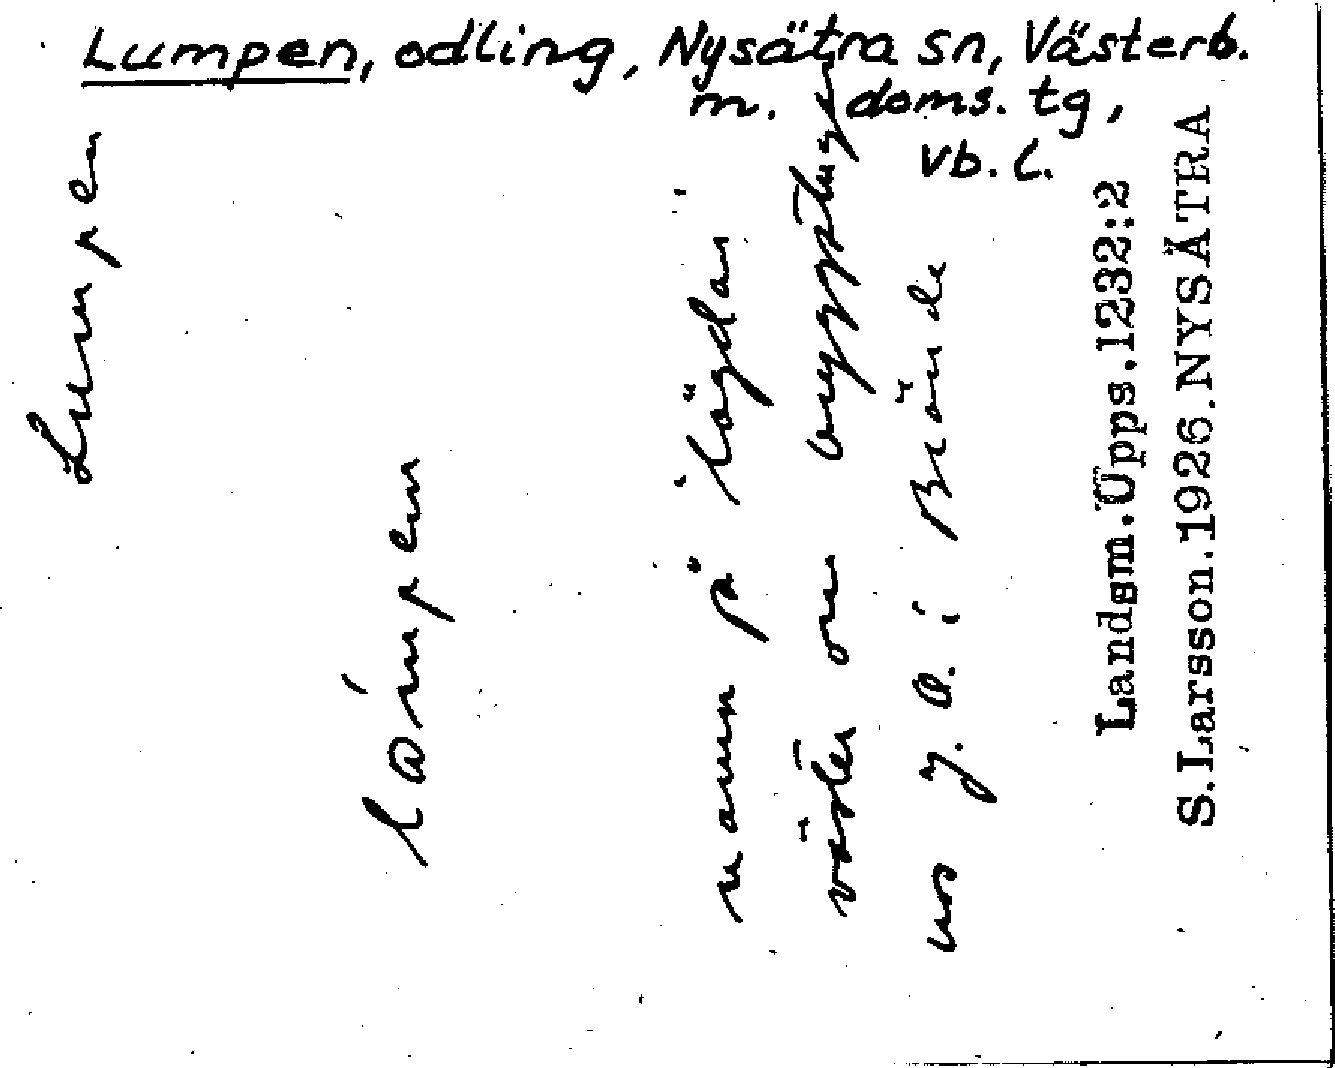 Lumpen, odling, Nysätra sn, Västerb.
m. doms. tg,
Vb. l.
Lumpen
namn på lägdar
väster om
i Brände
Landsm.Upps.1232:2
S.Larsson.1926.NYSÄTRA